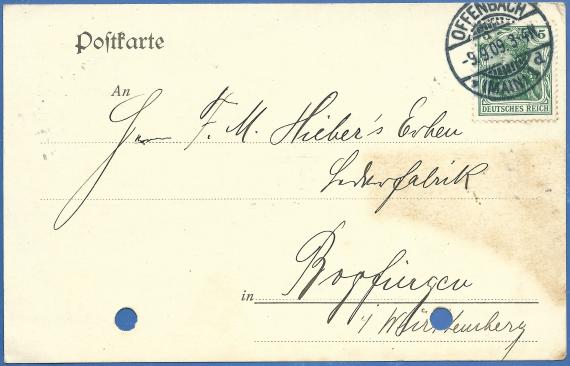 Postkarte
OFFENBACH
-9.9.09. 3-4N
(MAIN)
5
DEUTSCHES REICH
An
Herrn F. M. Hieber's Erben
Lederfabrik
in Bopfingen
i/ Württemberg